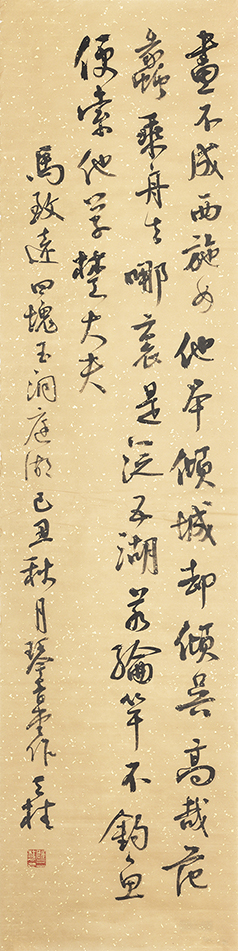 畫不成西施女他本傾城却傾吳高哉范
蠡乘舟去哪裏是泛五湖若綸竿不釣魚
便索他学楚大夫
馬致遠四塊玉洞庭湖己丑秋月琴作